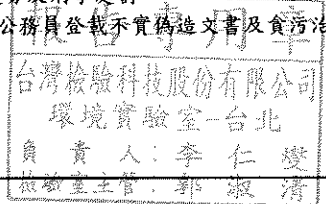 公務員登載不實偽造文書及貪污治
報告專用章
台灣檢驗科技股份有限公司
環境實驗室-台北
負責人：李仁燮
檢驗室主管：郭淑清